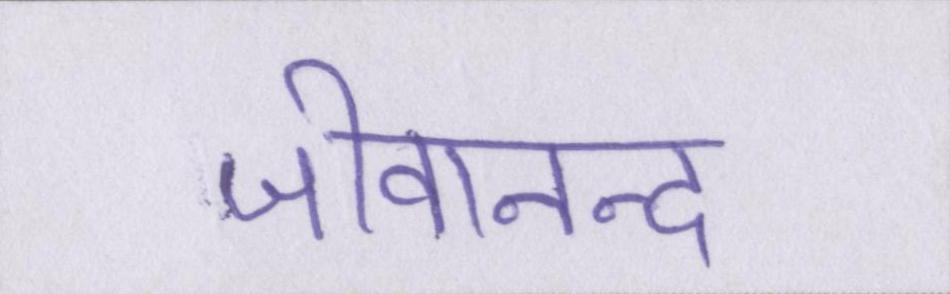 जीवानन्द